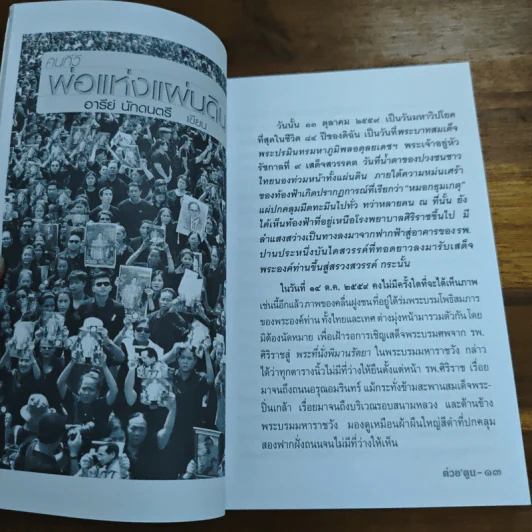 คนทั่ว
พ่อแห่งแผ่นดิน
อารีย์ นักดนตรี
เขียน
วันนั้น ๑๓ ตุลาคม ๒๕๕๙ เป็นวันมหาวิปโยค
ที่สุดในชีวิต ๘๔ ปีของดิฉัน เป็นวันที่พระบาทสมเด็จ
พระปรมินทรมหาภูมิพลอดุลยเดชฯ พระเจ้าอยู่หัว
รัชกาลที่ ๙ เสด็จสวรรคต วันที่น้ำตาของปวงชนชาว
ไทยนองท่วมหน้าทั้งแผ่นดิน ภายใต้ความหม่นเศร้า
ของท้องฟ้าเกิดปรากฏการณ์ที่เรียกว่า “หมอกธุมเกตุ”
แผ่ปกคลุมมืดทะมึนไปทั่ว ทว่าหลายคน ณ ที่นั้น ยัง
ได้เห็นท้องฟ้าที่อยู่เหนือโรงพยาบาลศิริราชขึ้นไป มี
ลำแสงสว่างเป็นทางลงมาจากฟากฟ้าสู่อาคารของรพ.
ปานประหนึ่งบันไดสวรรค์ที่ทอดยาวลงมารับเสด็จ
พระองค์ท่านขึ้นสู่สรวงสวรรค์ กระนั้น
ในวันที่ ๑๔ ต.ค. ๒๕๕๙ คงไม่มีครั้งใดที่จะได้เห็นภาพ
เช่นนี้อีกแล้วภาพของคลื่นฝูงชนที่อยู่ใต้ร่มพระบรมโพธิสมภาร
ของพระองค์ท่าน ทั้งไทยและเทศ ต่างมุ่งหน้ามารวมตัวกันโดย
มิต้องนัดหมาย เพื่อเฝ้ารอการเชิญเสด็จพระบรมศพจาก รพ.
ศิริราชสู่ พระที่นั่งพิมานรัตยา ในพระบรมมหาราชวัง กล่าว
ได้ว่าทุกตารางนิ้วไม่มีที่ว่างให้ยืนตั้งแต่หน้า รพ.ศิริราช เรื่อย
มาจนถึงถนนอรุณอมรินทร์ แม้กระทั่งข้ามสะพานสมเด็จพระ-
ปิ่นเกล้า เรื่อยมาจนถึงบริเวณรอบสนามหลวง และด้านข้าง
พระบรมมหาราชวัง มองดูเหมือนผ้าผืนใหญ่สีดำที่ปกคลุม
สองฟากฝั่งถนนจนไม่มีที่ว่างให้เห็น
ต่วย'ตูน - ๑๓